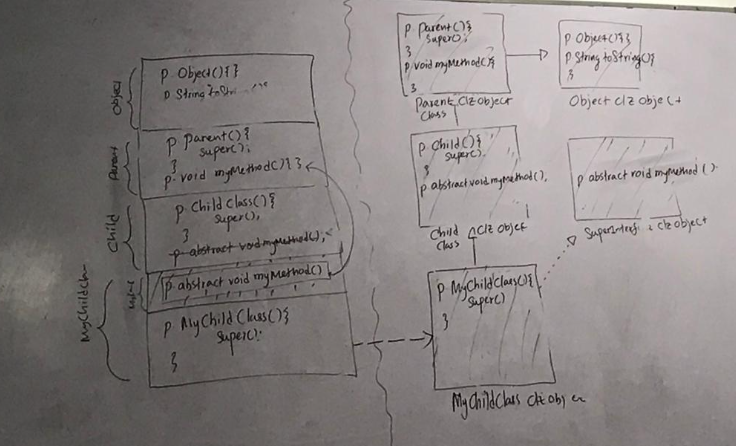 Object
p Object(){}
p String toStr
Parent
p Parent(){
super();
}
p void myMethod(){}
Child
p Child Class(){
super();
}
p abstract void myMethod();
MyChildCla
p abstract void myMethod()
p MyChildClass(){
super();
}
p Parent(){
super();
}
p void myMethod(){
}
Parent Clz Object
Class
p Object(){}
p String toString(){
}
Object Clz Object
p Child(){
super();
}
p abstract void myMethod();
Child Clz Object
Class
p abstract void myMethod().
Clz Object
p MyChildClass(){
super()
}
MyChildClass Clz Objec